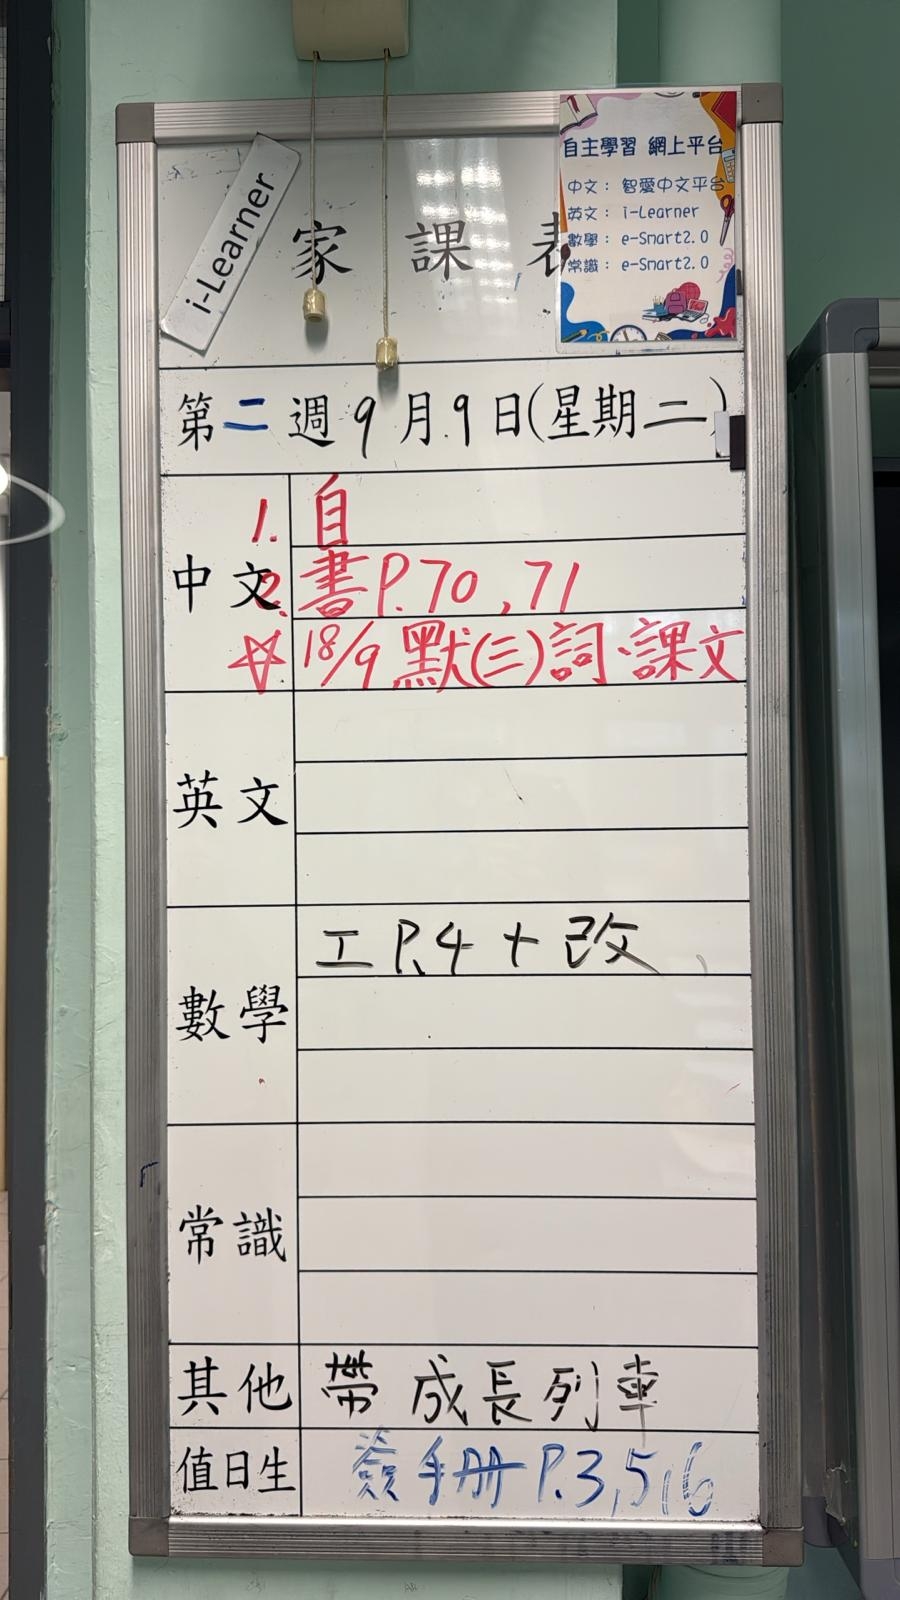 i-Learner
家 課 表
自主學習 網上平台
中文： 智愛中文平台
英文： i-Learner
數學： e-Smart2.0
常識： e-Smart2.0
第二週9月9日(星期二)
中文
1. 自
2. 書P.70,71
☆ 18/9 默(三)詞、課文
英文
數學
工 P.4 + 改
常識
其他 帶 成長列車
值日生 簽手冊 P.3,5,6